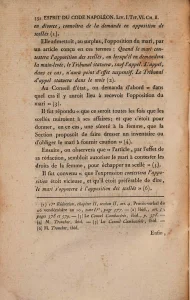 152 ESPRIT DU CODE NAPOLÉON. Liv. I. Tit. VI. Ch. II.
en divorce, connaître de la demande en apposition de
scellés (2).
Elle admettait, au surplus, l'opposition du mari, par
un article conçu en ces termes : Quand le mari con-
testera l'apposition des scellés, ou lorsqu'il en demandera
la main-levée, le Tribunal statuera, sauf l'appel. L'appel,
dans ce cas, n'aura point d'effet suspensif. Le Tribunal
d'appel statuera dans le mois (2).
Au Conseil d'État, on demanda d'abord « dans
quel cas il y aurait lieu à recevoir l'opposition du
mari » (3).
Il fut répondu « que ce seroit toutes les fois que les
scellés nuiroient à ses affaires; que c'étoit pour
donner, en ce cas, une sûreté à la femme, que la
Section proposoit de faire dresser un inventaire ou
d'obliger le mari à fournir caution » (4).
Ensuite, on observa que « l'article, par l'effet de
sa rédaction, sembloit autoriser le mari à contester les
droits de la femme, pour échapper au scellés » (5).
Il fut convenu « que l'expression contestera l'appo-
sition étoit vicieuse, et qu'il étoit préférable de dire,
le mari s'opposera à l'apposition des scellés » (6).
(4) M. Tronchet, ibid.
Enfin,